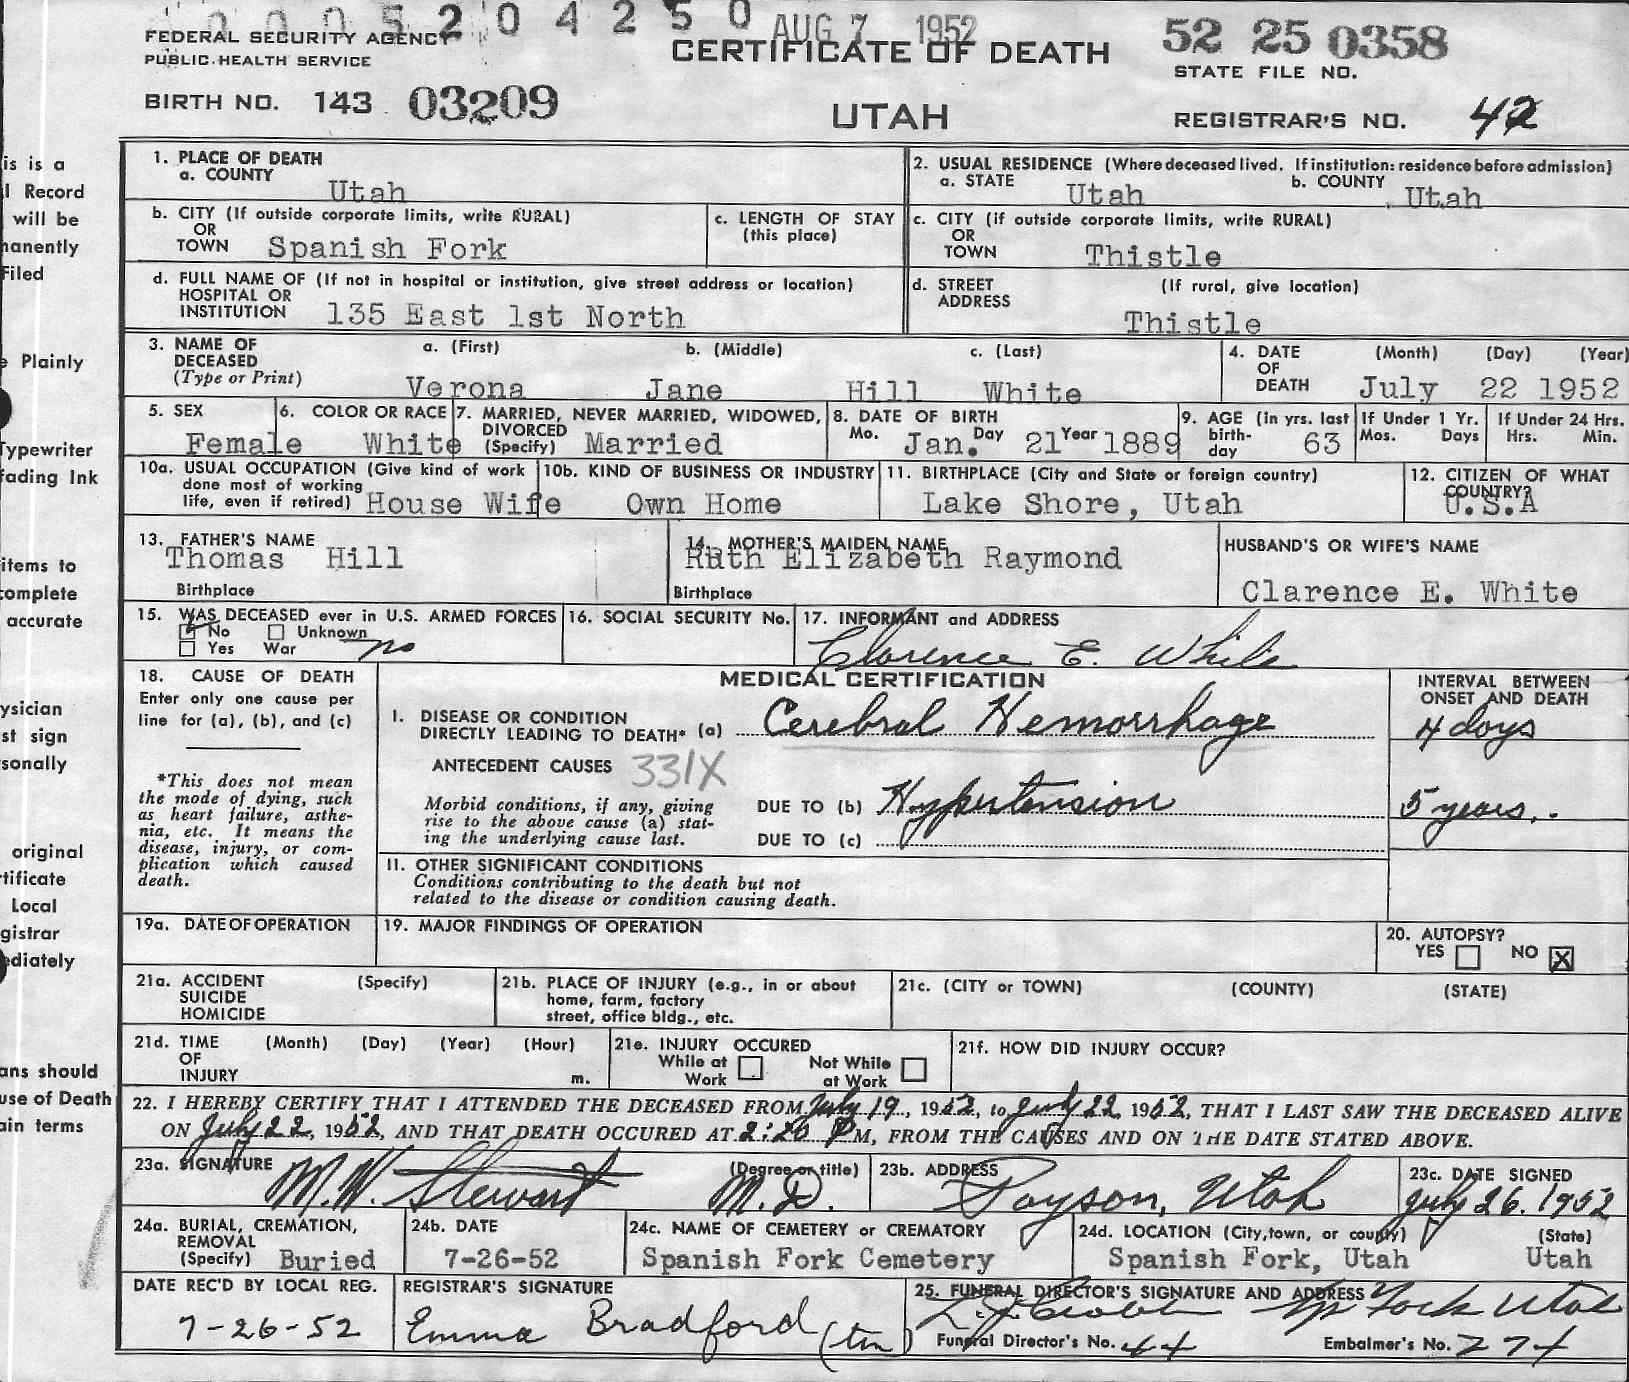 0 0 0 5 2 0 4 2 5 0 AUG 7 1952
FEDERAL SECURITY AGENCY
PUBLIC HEALTH SERVICE
CERTIFICATE OF DEATH
52 25 0358
STATE FILE NO.
BIRTH NO. 143 03209
UTAH
REGISTRAR'S NO. 42
is is a
l Record
will be
manently
Filed
e Plainly
Typewriter
fading Ink
items to
complete
accurate
ysician
st sign
sonally
original
rtificate
Local
gistrar
ediately
ans should
use of Death
ain terms
1. PLACE OF DEATH
a. COUNTY Utah
2. USUAL RESIDENCE (Where deceased lived. If institution: residence before admission)
a. STATE Utah b. COUNTY Utah
b. CITY (If outside corporate limits, write RURAL)
OR
TOWN Spanish Fork
c. LENGTH OF STAY
(this place)
c. CITY (If outside corporate limits, write RURAL)
OR
TOWN Thistle
d. FULL NAME OF (If not in hospital or institution, give street address or location)
HOSPITAL OR
INSTITUTION 135 East 1st North
d. STREET (If rural, give location)
ADDRESS
Thistle
3. NAME OF DECEASED (Type or Print)
a. (First) b. (Middle) c. (Last)
Verona Jane Hill White
4. DATE OF DEATH (Month) (Day) (Year)
July 22 1952
5. SEX
Female
6. COLOR OR RACE
White
7. MARRIED, NEVER MARRIED, WIDOWED, DIVORCED
(Specify) Married
8. DATE OF BIRTH
Mo. Jan. Day 21 Year 1889
9. AGE (in yrs. last birth-day 63
If Under 1 Yr.
Mos. Days
If Under 24 Hrs.
Hrs. Min.
10a. USUAL OCCUPATION (Give kind of work
done most of working
life, even if retired) House Wife
10b. KIND OF BUSINESS OR INDUSTRY
Own Home
11. BIRTHPLACE (City and State or foreign country)
Lake Shore, Utah
12. CITIZEN OF WHAT
COUNTRY?
U.S.A
13. FATHER'S NAME
Thomas Hill
Birthplace
14. MOTHER'S MAIDEN NAME
Ruth Elizabeth Raymond
Birthplace
HUSBAND'S OR WIFE'S NAME
Clarence E. White
15. WAS DECEASED ever in U.S. ARMED FORCES
No Unknown
Yes War no
16. SOCIAL SECURITY No.
17. INFORMANT and ADDRESS
Clarence E. White
18. CAUSE OF DEATH
Enter only one cause per
line for (a), (b), and (c)
*This does not mean
the mode of dying, such
as heart failure, asthe-
nia, etc. It means the
disease, injury, or com-
plication which caused
death.
MEDICAL CERTIFICATION
I. DISEASE OR CONDITION
DIRECTLY LEADING TO DEATH* (a) Cerebral Hemorrhage
ANTECEDENT CAUSES 331X
Morbid conditions, if any, giving
rise to the above cause (a) stat-
ing the underlying cause last.
DUE TO (b) Hypertension
DUE TO (c)
INTERVAL BETWEEN
ONSET AND DEATH
4 days
5 years
II. OTHER SIGNIFICANT CONDITIONS
Conditions contributing to the death but not
related to the disease or condition causing death.
19a. DATE OF OPERATION
19. MAJOR FINDINGS OF OPERATION
20. AUTOPSY?
YES NO X
21a. ACCIDENT (Specify)
SUICIDE
HOMICIDE
21b. PLACE OF INJURY (e.g., in or about
home, farm, factory
street, office bldg., etc.
21c. (CITY or TOWN) (COUNTY) (STATE)
21d. TIME (Month) (Day) (Year) (Hour)
OF
INJURY m.
21e. INJURY OCCURED
While at Work Not While at Work
21f. HOW DID INJURY OCCUR?
22. I HEREBY CERTIFY THAT I ATTENDED THE DECEASED FROM July 19, 1952, to July 22 1952, THAT I LAST SAW THE DECEASED ALIVE
ON July 22, 1952, AND THAT DEATH OCCURED AT 2:20 P M, FROM THE CAUSES AND ON THE DATE STATED ABOVE.
23a. SIGNATURE (Degree or title)
M. W. Stewart M.D.
23b. ADDRESS
Payson, Utah
23c. DATE SIGNED
July 26. 1952
24a. BURIAL, CREMATION,
REMOVAL
(Specify) Buried
24b. DATE
7-26-52
24c. NAME OF CEMETERY or CREMATORY
Spanish Fork Cemetery
24d. LOCATION (City, town, or county) (State)
Spanish Fork, Utah Utah
DATE REC'D BY LOCAL REG.
7-26-52
REGISTRAR'S SIGNATURE
Emma Bradford
25. FUNERAL DIRECTOR'S SIGNATURE AND ADDRESS
Fork Utah
Funeral Director's No. 44 Embalmer's No. 274